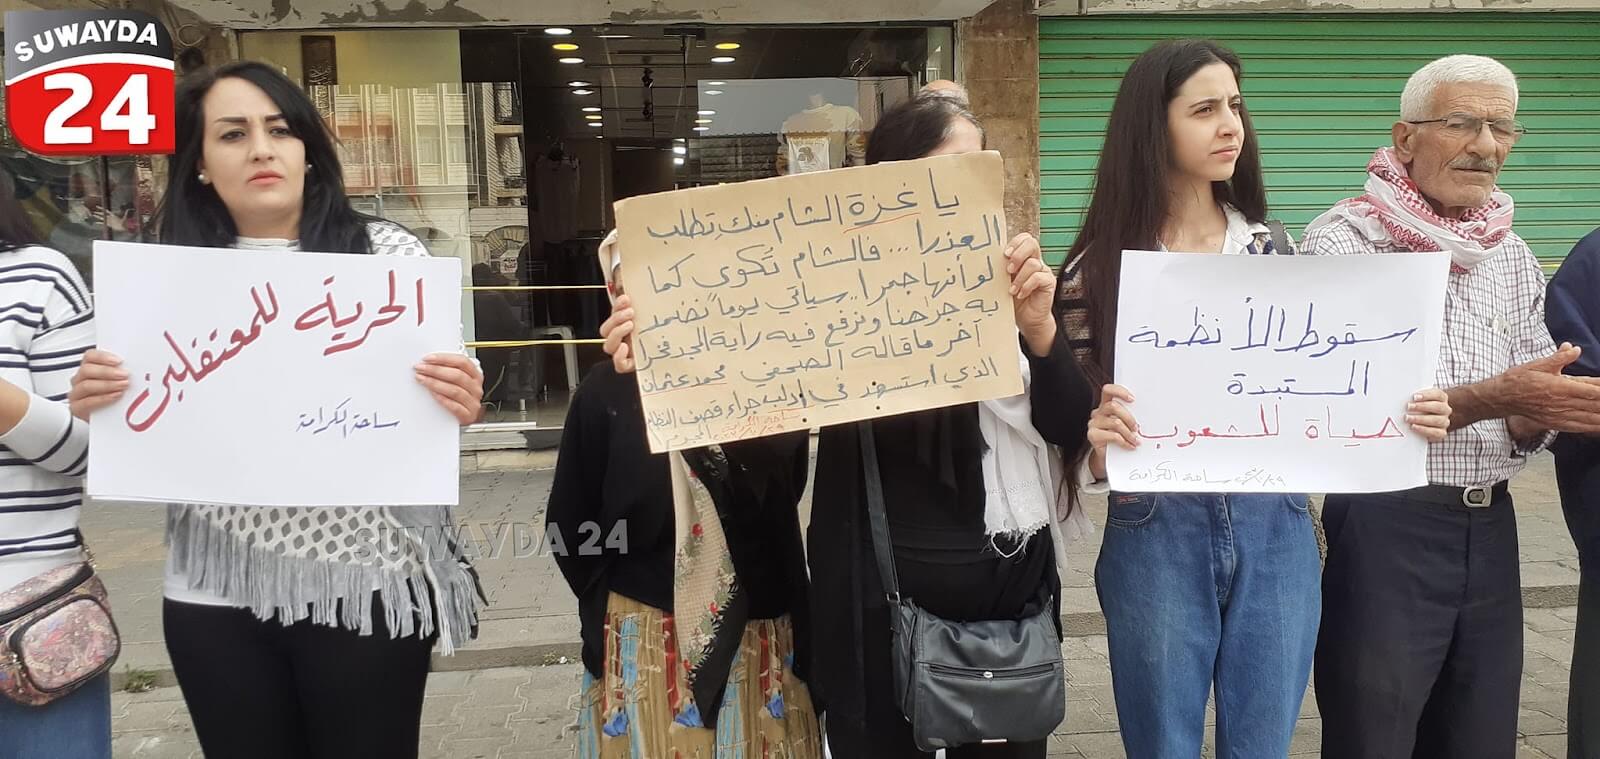 SUWAYDA
24
الحرية للمعتقلين
ساحة الكرامة
يا غزة الشام منك تطلب
العذرا... فالشام تُكوى كما
لو أنها جمرا.. سيأتي يوماً نضمد
به جراحنا ونرفع فيه راية المجد فخرا
آخر ما قاله الصحفي محمود عثمان
الذي استشهد في إدلب جراء قصف النظام
ساحة الكرامة المجرم
سقوط الأنظمة
المستبدة
حياة للشعوب
ساحة الكرامة
SUWAYDA 24